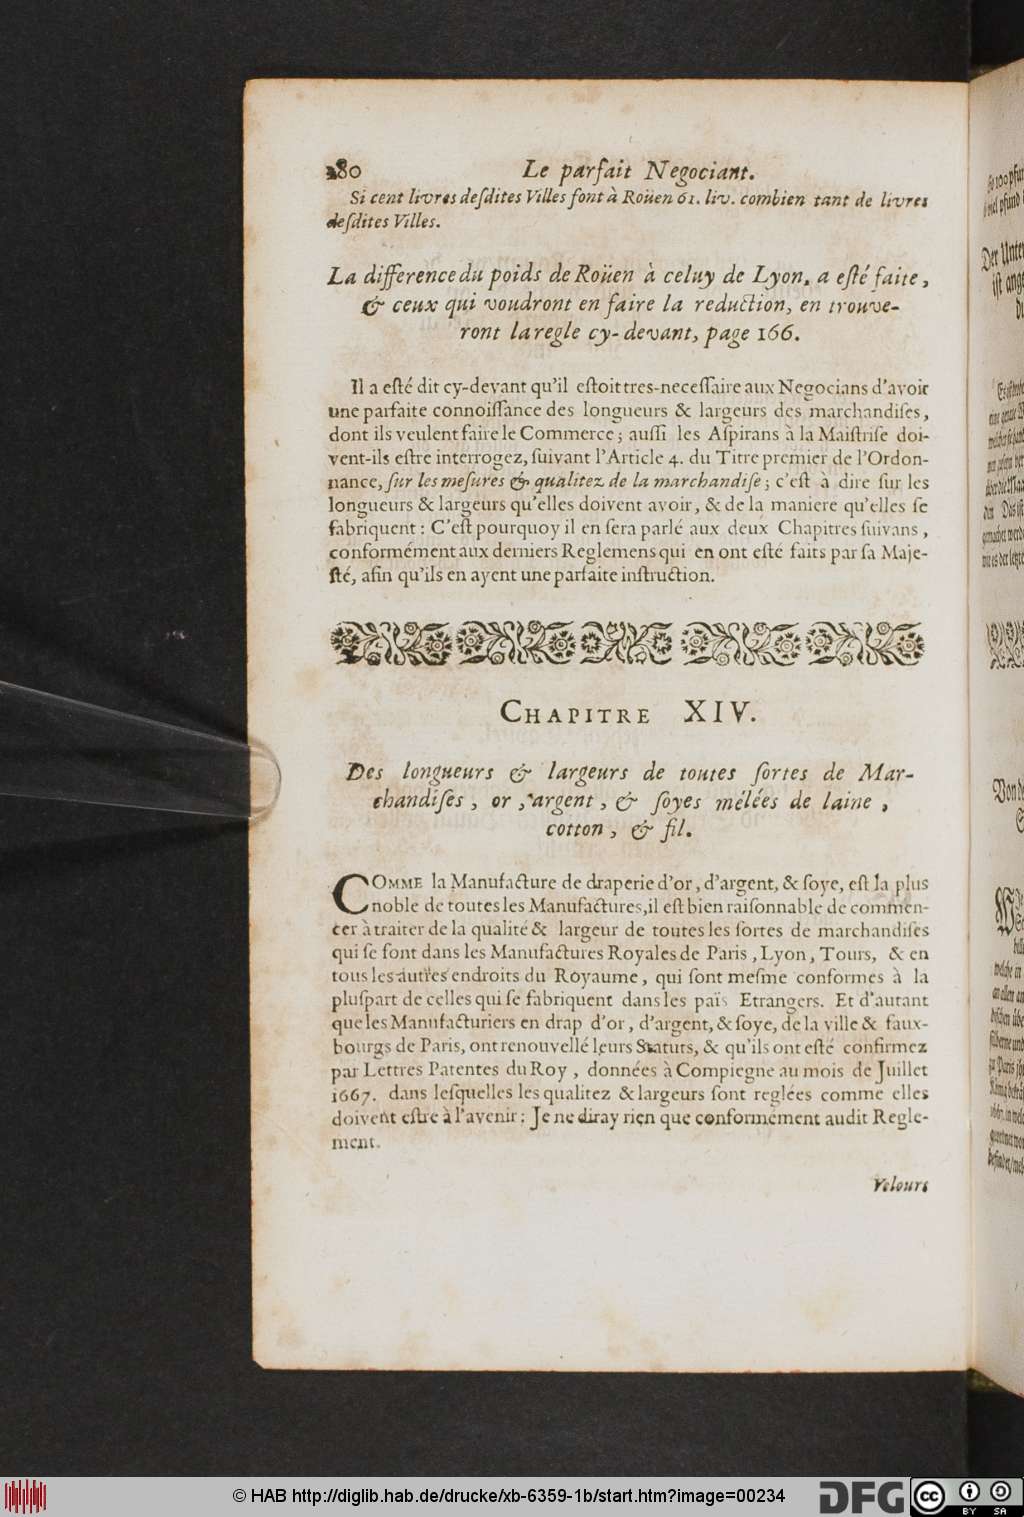 180 Le parfait Negociant.
Si cent livres deſdites Villes font à Roüen 61. liv. combien tant de livres
deſdites Villes.
La difference du poids de Roüen à celuy de Lyon, a eſté faite,
& ceux qui voudront en faire la reduction, en trouve-
ront la regle cy-devant, page 166.
Il a eſté dit cy-devant qu'il eſtoit tres-neceſſaire aux Negocians d'avoir
une parfaite connoiſſance des longueurs & largeurs des marchandiſes,
dont ils veulent faire le Commerce; auſſi les Aſpirans à la Maiſtriſe doi-
vent-ils eſtre interrogez, ſuivant l'Article 4. du Titre premier de l'Ordon-
nance, ſur les meſures & qualitez de la marchandiſe; c'eſt à dire ſur les
longueurs & largeurs qu'elles doivent avoir, & de la maniere qu'elles ſe
fabriquent: C'eſt pourquoy il en ſera parlé aux deux Chapitres ſuivans,
conformément aux derniers Reglemens qui en ont eſté faits par ſa Maje-
ſté, afin qu'ils en ayent une parfaite inſtruction.
CHAPITRE XIV.
Des longueurs & largeurs de toutes ſortes de Mar-
chandiſes, or, argent, & ſoyes mélées de laine,
cotton, & fil.
COMME la Manufacture de draperie d'or, d'argent, & ſoye, eſt la plus
noble de toutes les Manufactures, il eſt bien raiſonnable de commen-
cer à traiter de la qualité & largeur de toutes les ſortes de marchandiſes
qui ſe font dans les Manufactures Royales de Paris, Lyon, Tours, & en
tous les autres endroits du Royaume, qui ſont meſme conformes à la
pluſpart de celles qui ſe fabriquent dans les païs Etrangers. Et d'autant
que les Manufacturiers en drap d'or, d'argent, & ſoye, de la ville & faux-
bourgs de Paris, ont renouvellé leurs Statuts, & qu'ils ont eſté confirmez
par Lettres Patentes du Roy, données à Compiegne au mois de Juillet
1667. dans leſquelles les qualitez & largeurs ſont reglées comme elles
doivent eſtre à l'avenir: Je ne diray rien que conformément audit Regle-
ment.
Velours
© HAB http://diglib.hab.de/drucke/xb-6359-1b/start.htm?image=00234
DFG
cc BY SA